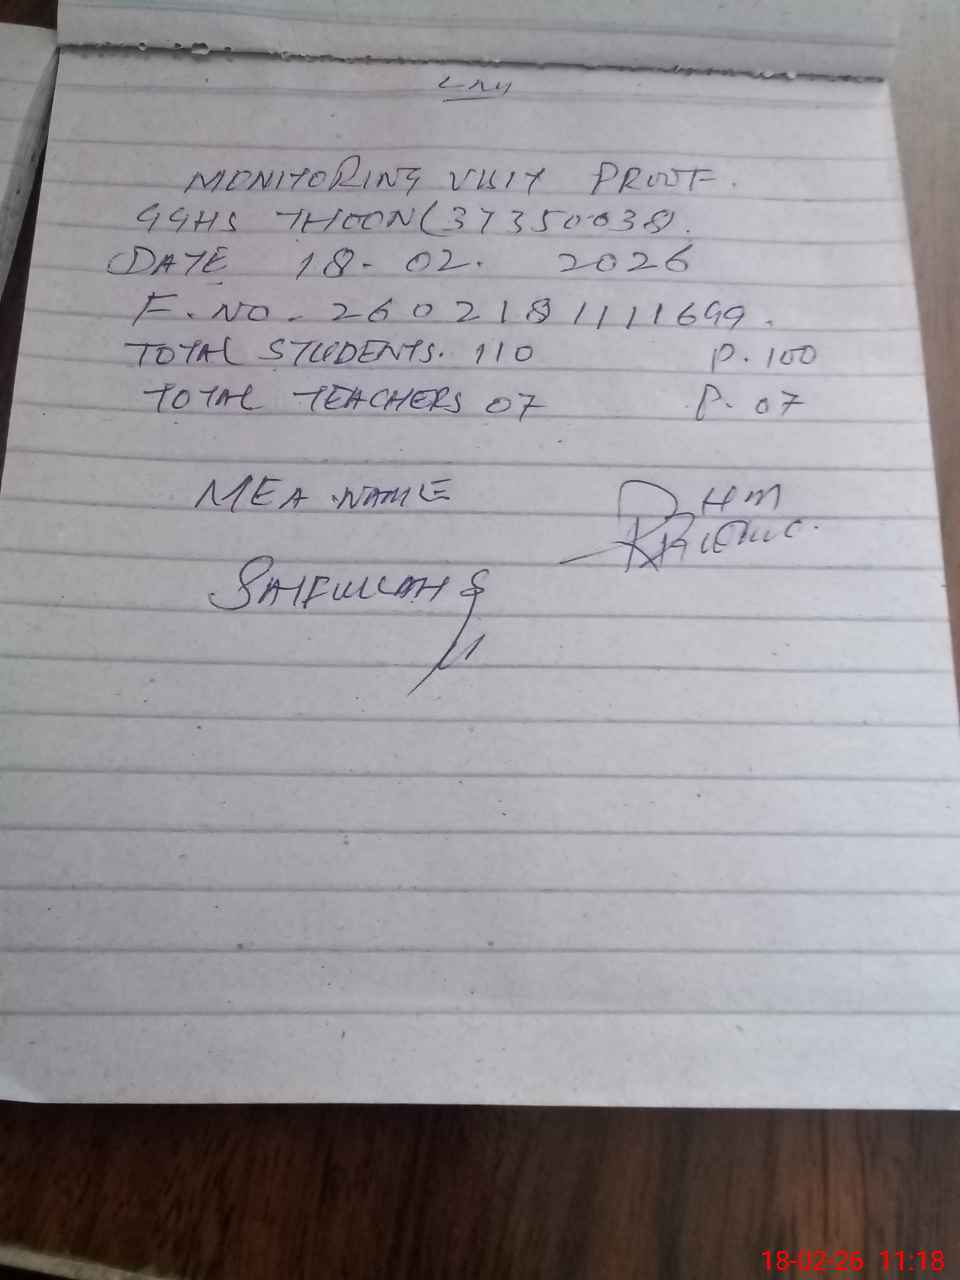 MONITORING VISIT PROOF.
GGHS THOON (37350038).
DATE 18-02. 2026
F. NO. 2602181111699.
TOTAL STUDENTS. 110 P. 100
TOTAL TEACHERS 07 P. 07
MEA NAME HM
SAIFULLAH
18-02-26 11:18